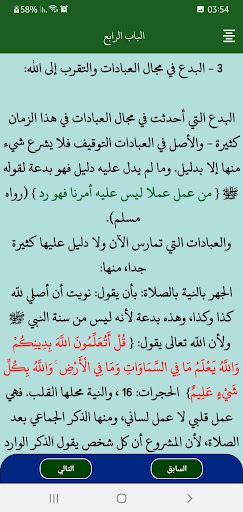 58% 03:54
الباب الرابع
3 - البدع في مجال العبادات والتقرب إلى الله:
البدع التي أحدثت في مجال العبادات في هذا الزمان
كثيرة - والأصل في العبادات التوقيف فلا يشرع شيء
منها إلا بدليل. وما لم يدل عليه دليل فهو بدعة لقوله
ﷺ { من عمل عملا ليس عليه أمرنا فهو رد } (رواه
مسلم).
والعبادات التي تمارس الآن ولا دليل عليها كثيرة
جدا، منها:
الجهر بالنية بالصلاة: بأن يقول: نويت أن أصلي للّه
كذا وكذا، وهذه بدعة لأنه ليس من سنة النبي ﷺ
ولأن اللّه تعالى يقول: { قُلْ أَتُعَلِّمُونَ اللَّهَ بِدِينِكُمْ
وَاللَّهُ يَعْلَمُ مَا فِي السَّمَاوَاتِ وَمَا فِي الْأَرْضِ ۚ وَاللَّهُ بِكُلِّ
شَيْءٍ عَلِيمٌ } الحجرات: 16 ، والنية محلها القلب. فهي
عمل قلبي لا عمل لساني، ومنها الذكر الجماعي بعد
الصلاة، لأن المشروع أن كل شخص يقول الذكر الوارد
السابق
التالي